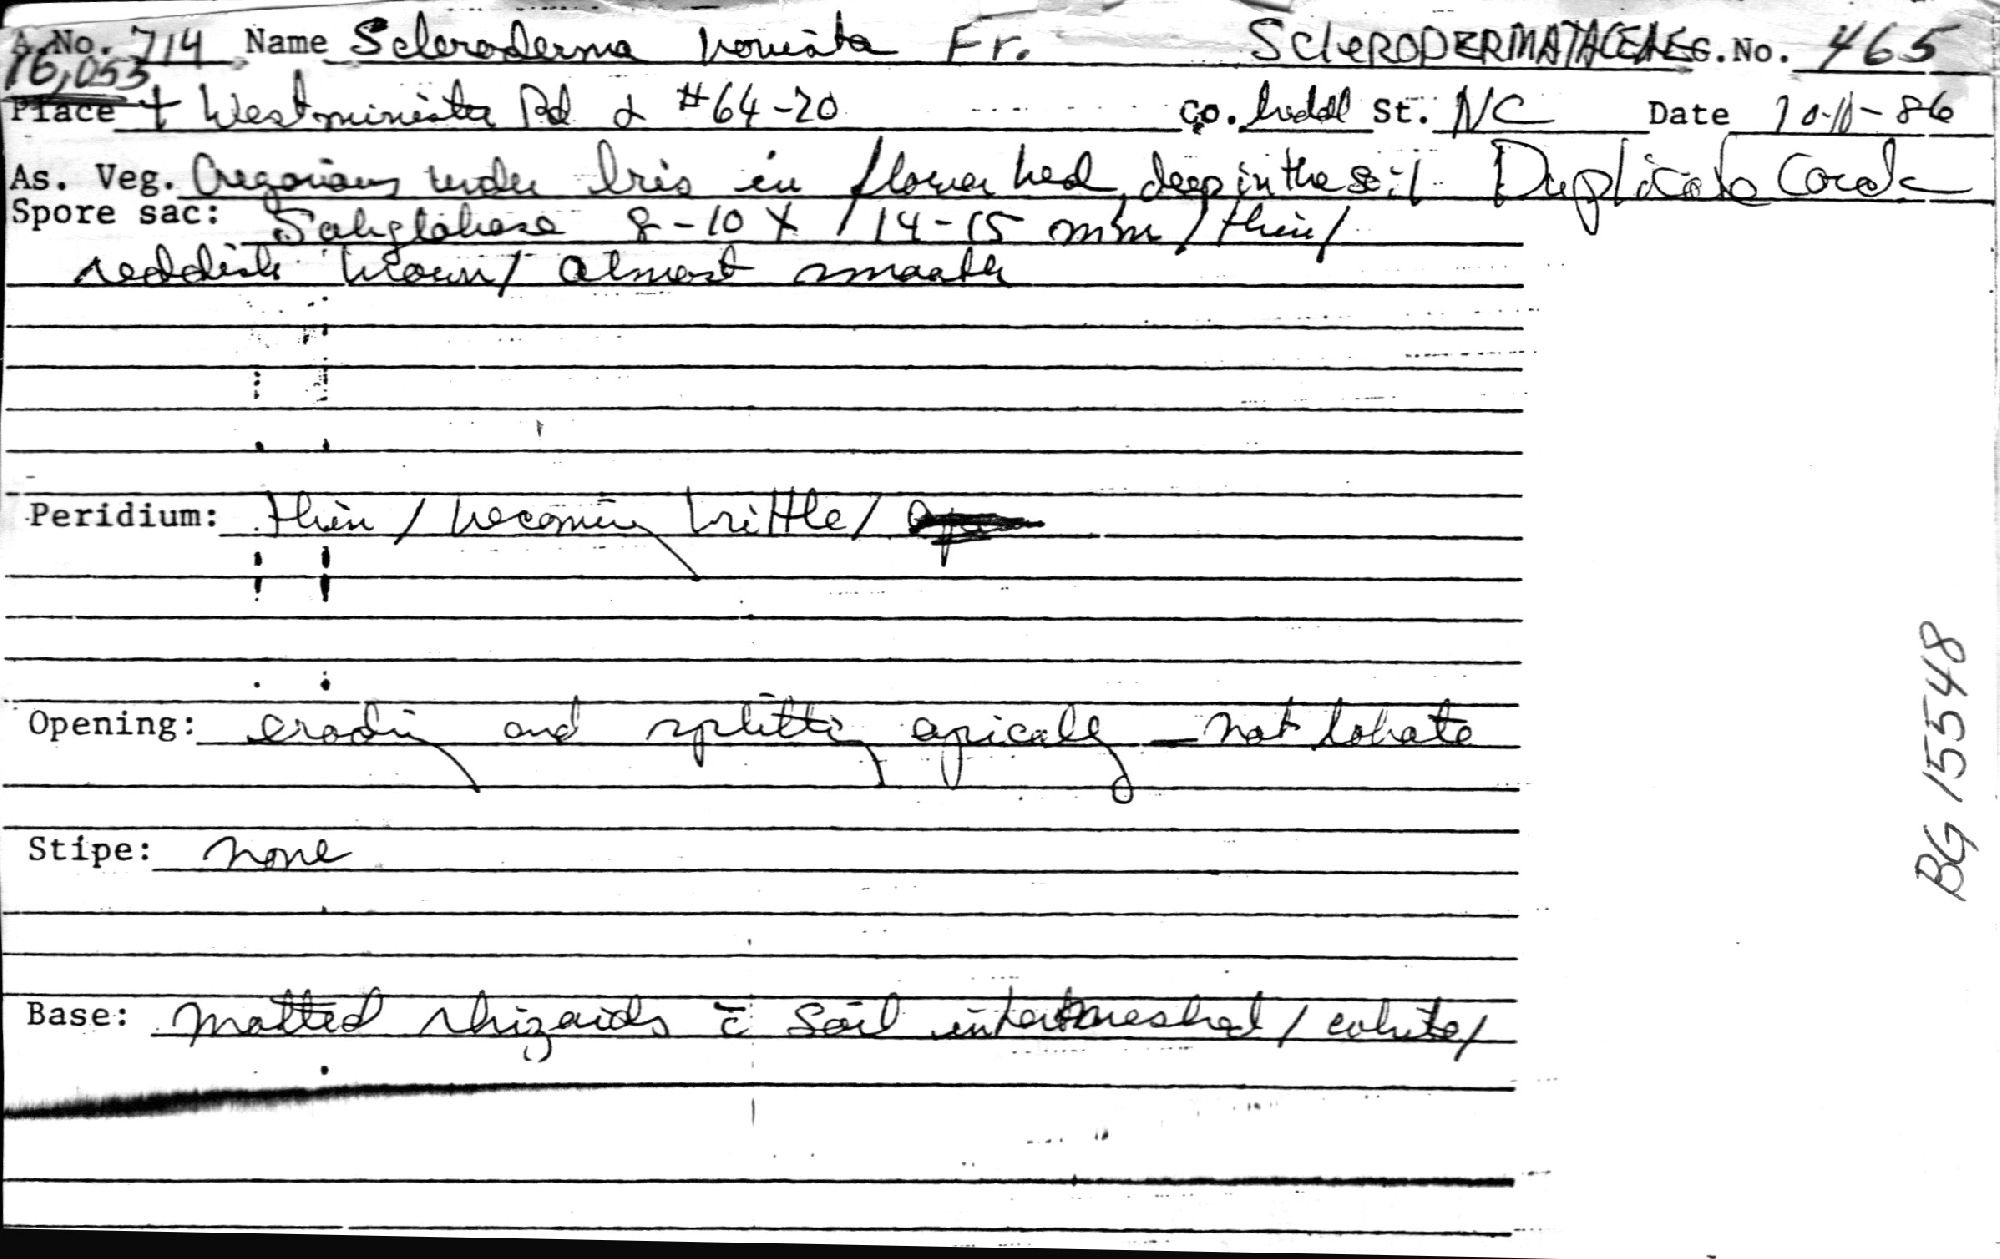 A.No. 714 Name Scleroderma bovista Fr. SCLERODERMATACEAE G. No. 465
16,053
Place + Westminister Rd & #64-20 Co. Iredell St. NC Date 10-11-86
As. Veg. Gregarious under Iris in flower bed, deep in the soil Duplicate Card
Spore sac: Subglobose 8-10 X /14-15 mm/thin/
reddish brown/ almost smooth
Peridium: thin / becoming brittle/
Opening: eroding and splitting apically - not lobate
Stipe: none
Base: Matted rhizoids c̄ soil intermeshed / white/
BG 15548